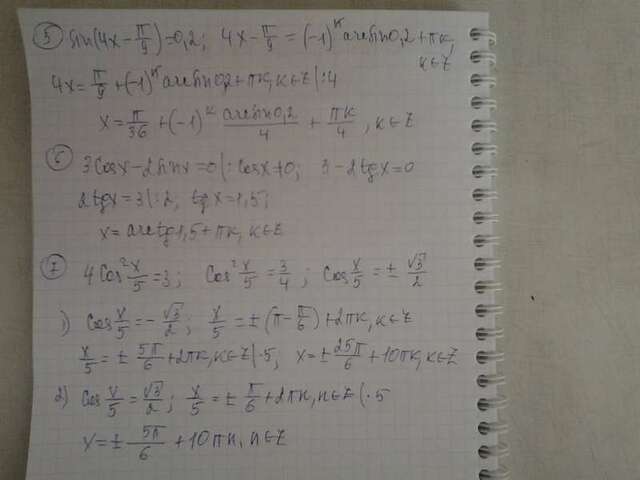 5 sin(4x - π/9) = 0,2; 4x - π/9 = (-1)^к arcsin 0,2 + πк,
к∈Z
4x = π/9 + (-1)^к arcsin 0,2 + πк, к∈Z |:4
x = π/36 + (-1)^к arcsin 0,2/4 + πк/4, к∈Z
6 3cosx - 2sinx = 0 |: cosx ≠ 0; 3 - 2tgx = 0
2tgx = 3 |:2, tgx = 1,5;
x = arctg 1,5 + πк, к∈Z
7 4cos² x/5 = 3; cos² x/5 = 3/4; cos x/5 = ± √3/2
1) cos x/5 = -√3/2; x/5 = ±(π - π/6) + 2πк, к∈Z
x/5 = ± 5π/6 + 2πк, к∈Z |·5; x = ± 25π/6 + 10πк, к∈Z
2) cos x/5 = √3/2; x/5 = ± π/6 + 2πn, n∈Z |·5
x = ± 5π/6 + 10πn, n∈Z